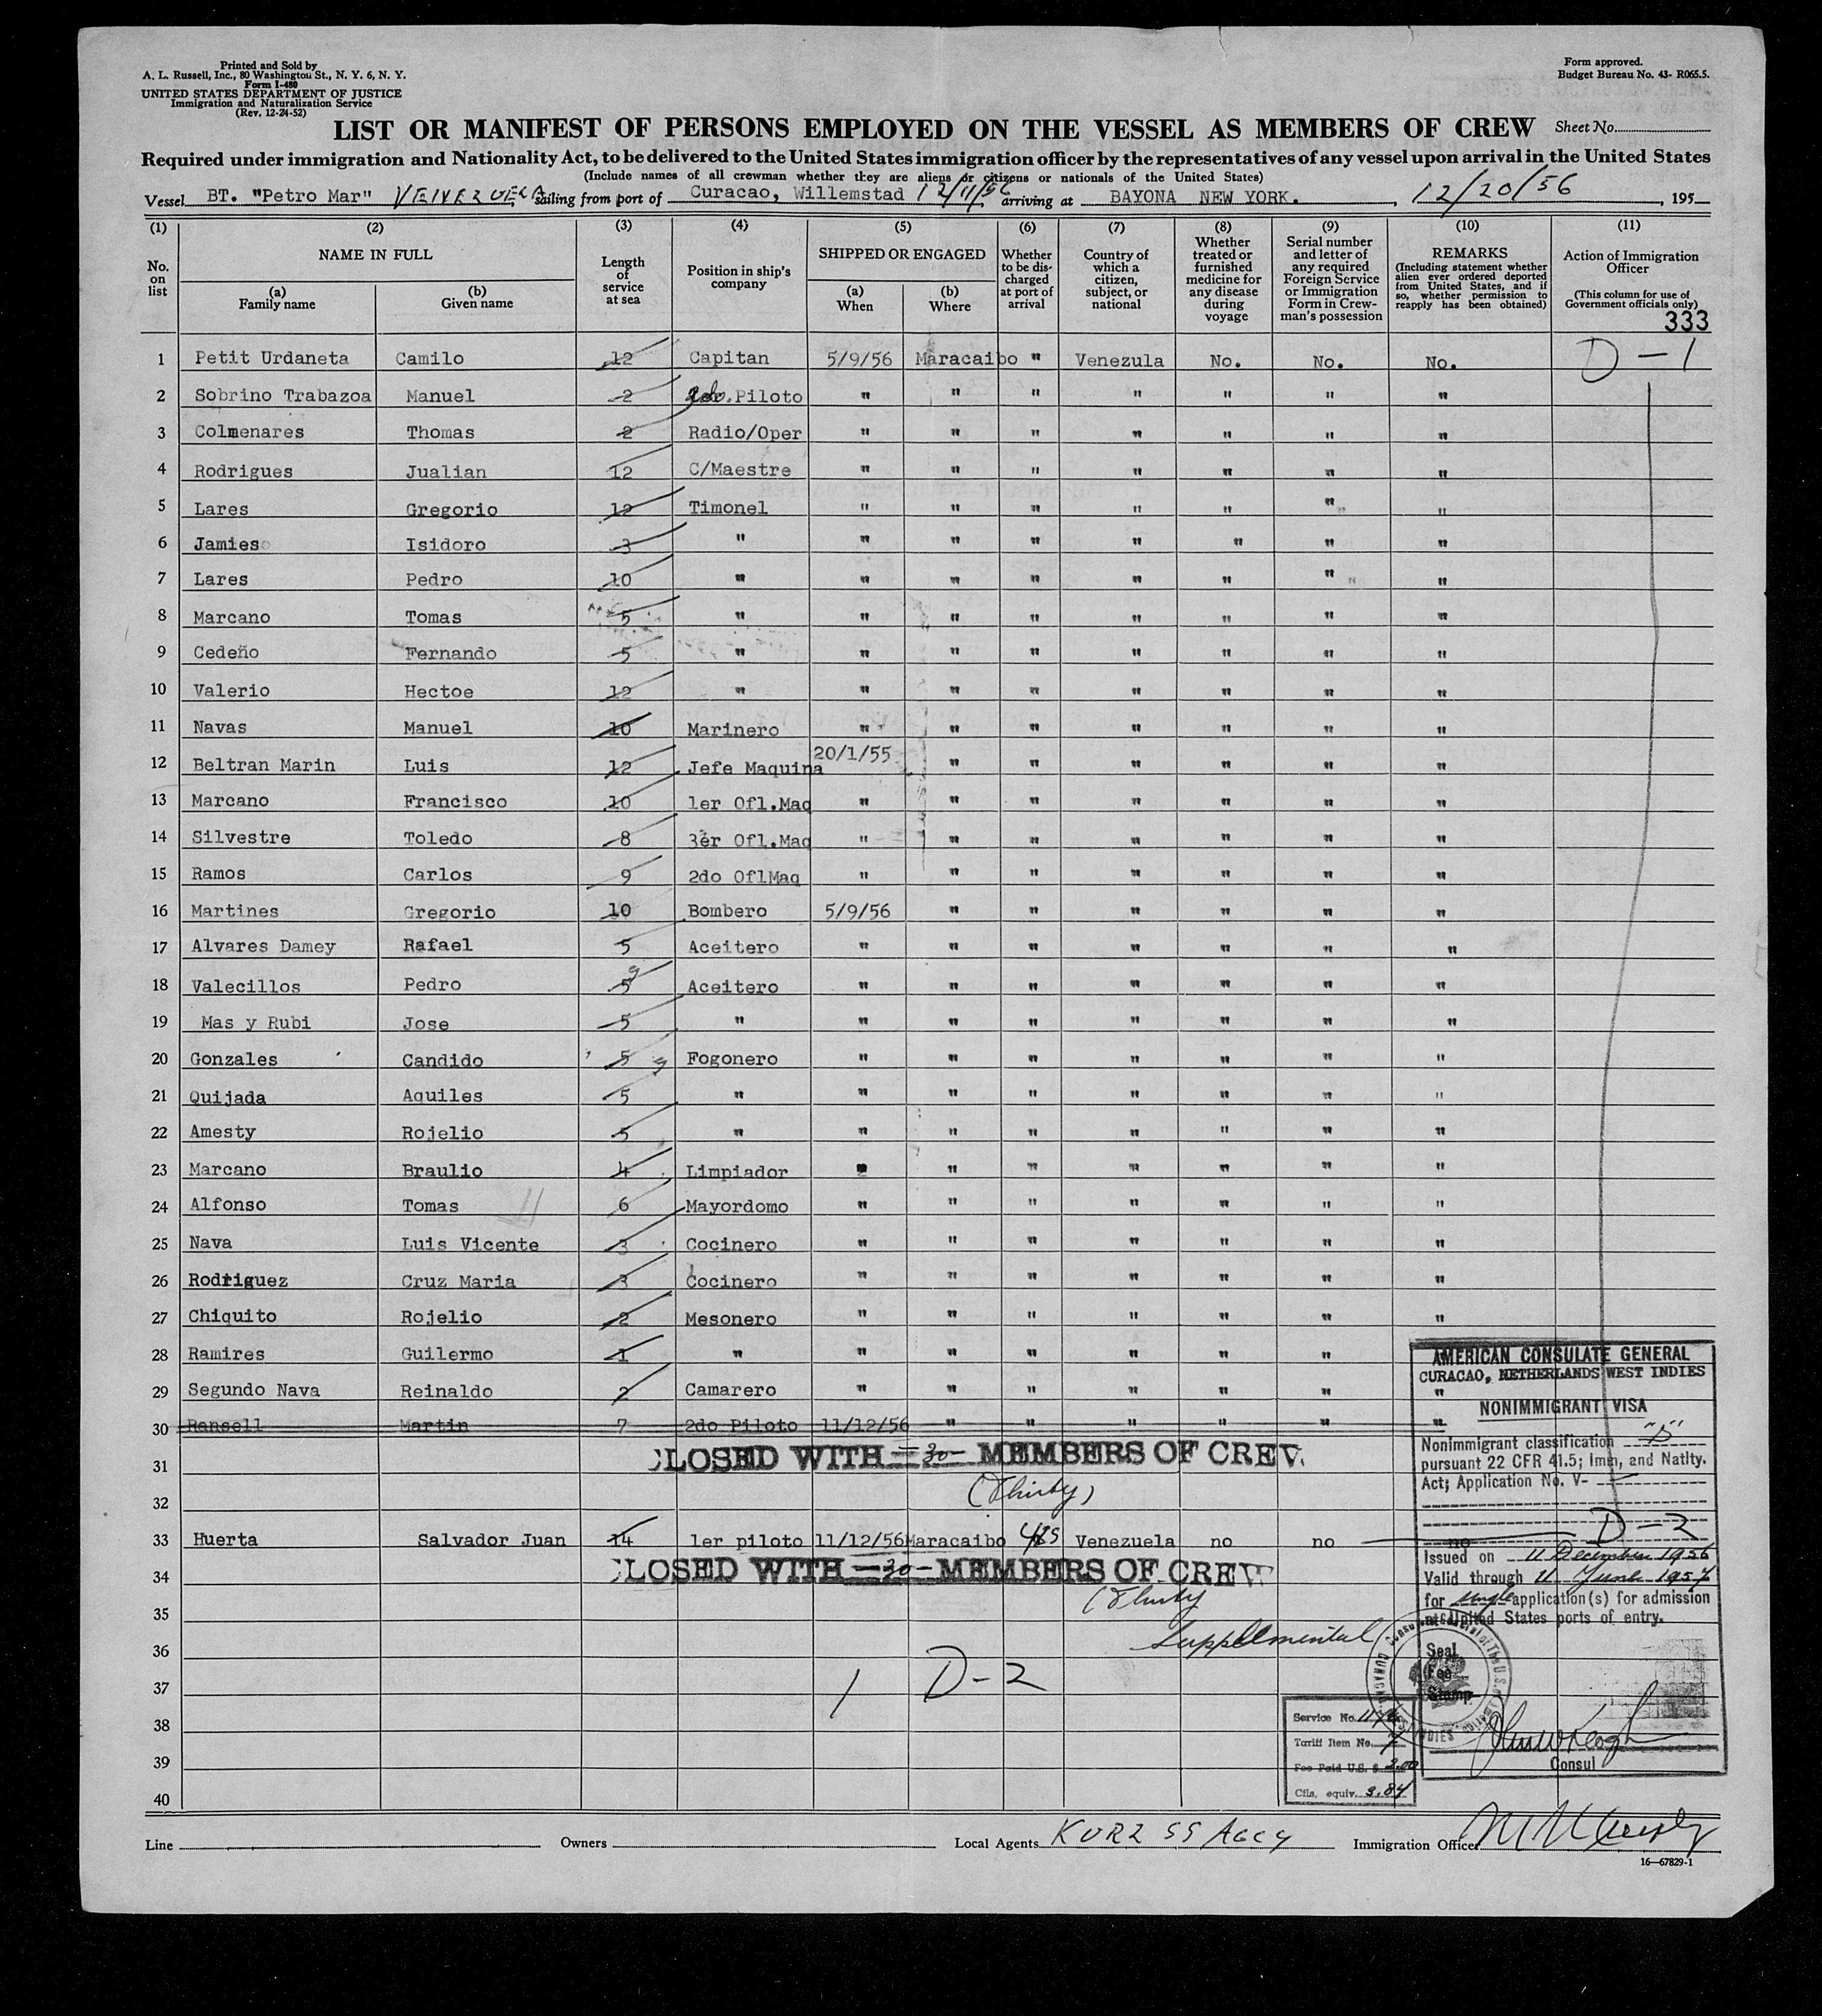 Printed and Sold by
A. L. Russell, Inc., 80 Washington St., N. Y. 6, N. Y.
Form I-480
UNITED STATES DEPARTMENT OF JUSTICE
Immigration and Naturalization Service
(Rev. 12-24-52)
Form approved.
Budget Bureau No. 43- R065.5.
LIST OR MANIFEST OF PERSONS EMPLOYED ON THE VESSEL AS MEMBERS OF CREW Sheet No.
Required under immigration and Nationality Act, to be delivered to the United States immigration officer by the representatives of any vessel upon arrival in the United States
(Include names of all crewman whether they are aliens or citizens or nationals of the United States)
Vessel BT. "Petro Mar" sailing from port of Curacao, Willemstad 12/11/56 arriving at BAYONA NEW YORK. , 12/20/56 , 195
(1) (2) (3) (4) (5) (6) (7) (8) (9) (10) (11)
No. on list
NAME IN FULL
(a) Family name
(b) Given name
Length of service at sea
Position in ship's company
SHIPPED OR ENGAGED
(a) When
(b) Where
Whether to be discharged at port of arrival
Country of which a citizen, subject, or national
Whether treated or furnished medicine for any disease during voyage
Serial number and letter of any required Foreign Service or Immigration Form in Crewman's possession
REMARKS
(Including statement whether alien ever ordered deported from United States, and if so, whether permission to reapply has been obtained)
Action of Immigration Officer
(This column for use of Government officials only)
333
1 Petit Urdaneta Camilo 12 Capitan 5/9/56 Maracaibo " Venezula No. No. No. D-1
2 Sobrino Trabazoa Manuel 2 2do.Piloto " " " " " " "
3 Colmenares Thomas 2 Radio/Oper " " " " " " "
4 Rodrigues Jualian 12 C/Maestre " " " " " " "
5 Lares Gregorio 12 Timonel " " " " " " "
6 Jamieso Isidoro 3 " " " " " " " "
7 Lares Pedro 10 " " " " " " " "
8 Marcano Tomas 5 " " " " " " " "
9 Cedeño Fernando 5 " " " " " " " "
10 Valerio Hectoe 12 " " " " " " " "
11 Navas Manuel 10 Marinero " " " " " " "
12 Beltran Marin Luis 12 Jefe Maquina 20/1/55 " " " " " "
13 Marcano Francisco 10 1er Ofl.Maq " " " " " " "
14 Silvestre Toledo 8 3ér Ofl.Maq " " " " " " "
15 Ramos Carlos 9 2do OflMaq " " " " " " "
16 Martines Gregorio 10 Bombero 5/9/56 " " " " " "
17 Alvares Damey Rafael 5 Aceitero " " " " " " "
18 Valecillos Pedro 5 9 Aceitero " " " " " " "
19 Mas y Rubi Jose 5 " " " " " " " "
20 Gonzales Candido 5 9 Fogonero " " " " " " "
21 Quijada Aquiles 5 " " " " " " " "
22 Amesty Rojelio 5 " " " " " " " "
23 Marcano Braulio 4 Limpiador " " " " " " "
24 Alfonso Tomas 6 Mayordomo " " " " " " "
25 Nava Luis Vicente 3 Cocinero " " " " " " "
26 Rodriguez Cruz Maria 3 Cocinero " " " " " " "
27 Chiquito Rojelio 2 Mesonero " " " " " " "
28 Ramires Guilermo 1 " " " " " " "
29 Segundo Nava Reinaldo 2 Camarero " " " " " " "
30 Ransell Martin 7 2do Piloto 11/12/56 " " " " " "
31 CLOSED WITH -30- MEMBERS OF CREW
32 (Thirty)
33 Huerta Salvador Juan 14 1er piloto 11/12/56 Maracaibo Venezuela no no no D-2
34 CLOSED WITH -30- MEMBERS OF CREW
35 (Thirty
36 Supplemental
37 1 D-2
38
39
40
AMERICAN CONSULATE GENERAL
CURACAO, NETHERLANDS WEST INDIES
NONIMMIGRANT VISA
Nonimmigrant classification "D"
pursuant 22 CFR 41.5; Imm, and Natlty.
Act; Application No. V-
Issued on 11 December 1956
Valid through 11 June 1957
for single application(s) for admission
at United States ports of entry.
Seal
Fee
Stamp
Consul
Service No.
Tariff Item No. 7
Fee Paid U.S. $ 2.00
Cfls. equiv. 3.84
Line Owners Local Agents KURZ SS AGCY Immigration Officer
16—67829-1